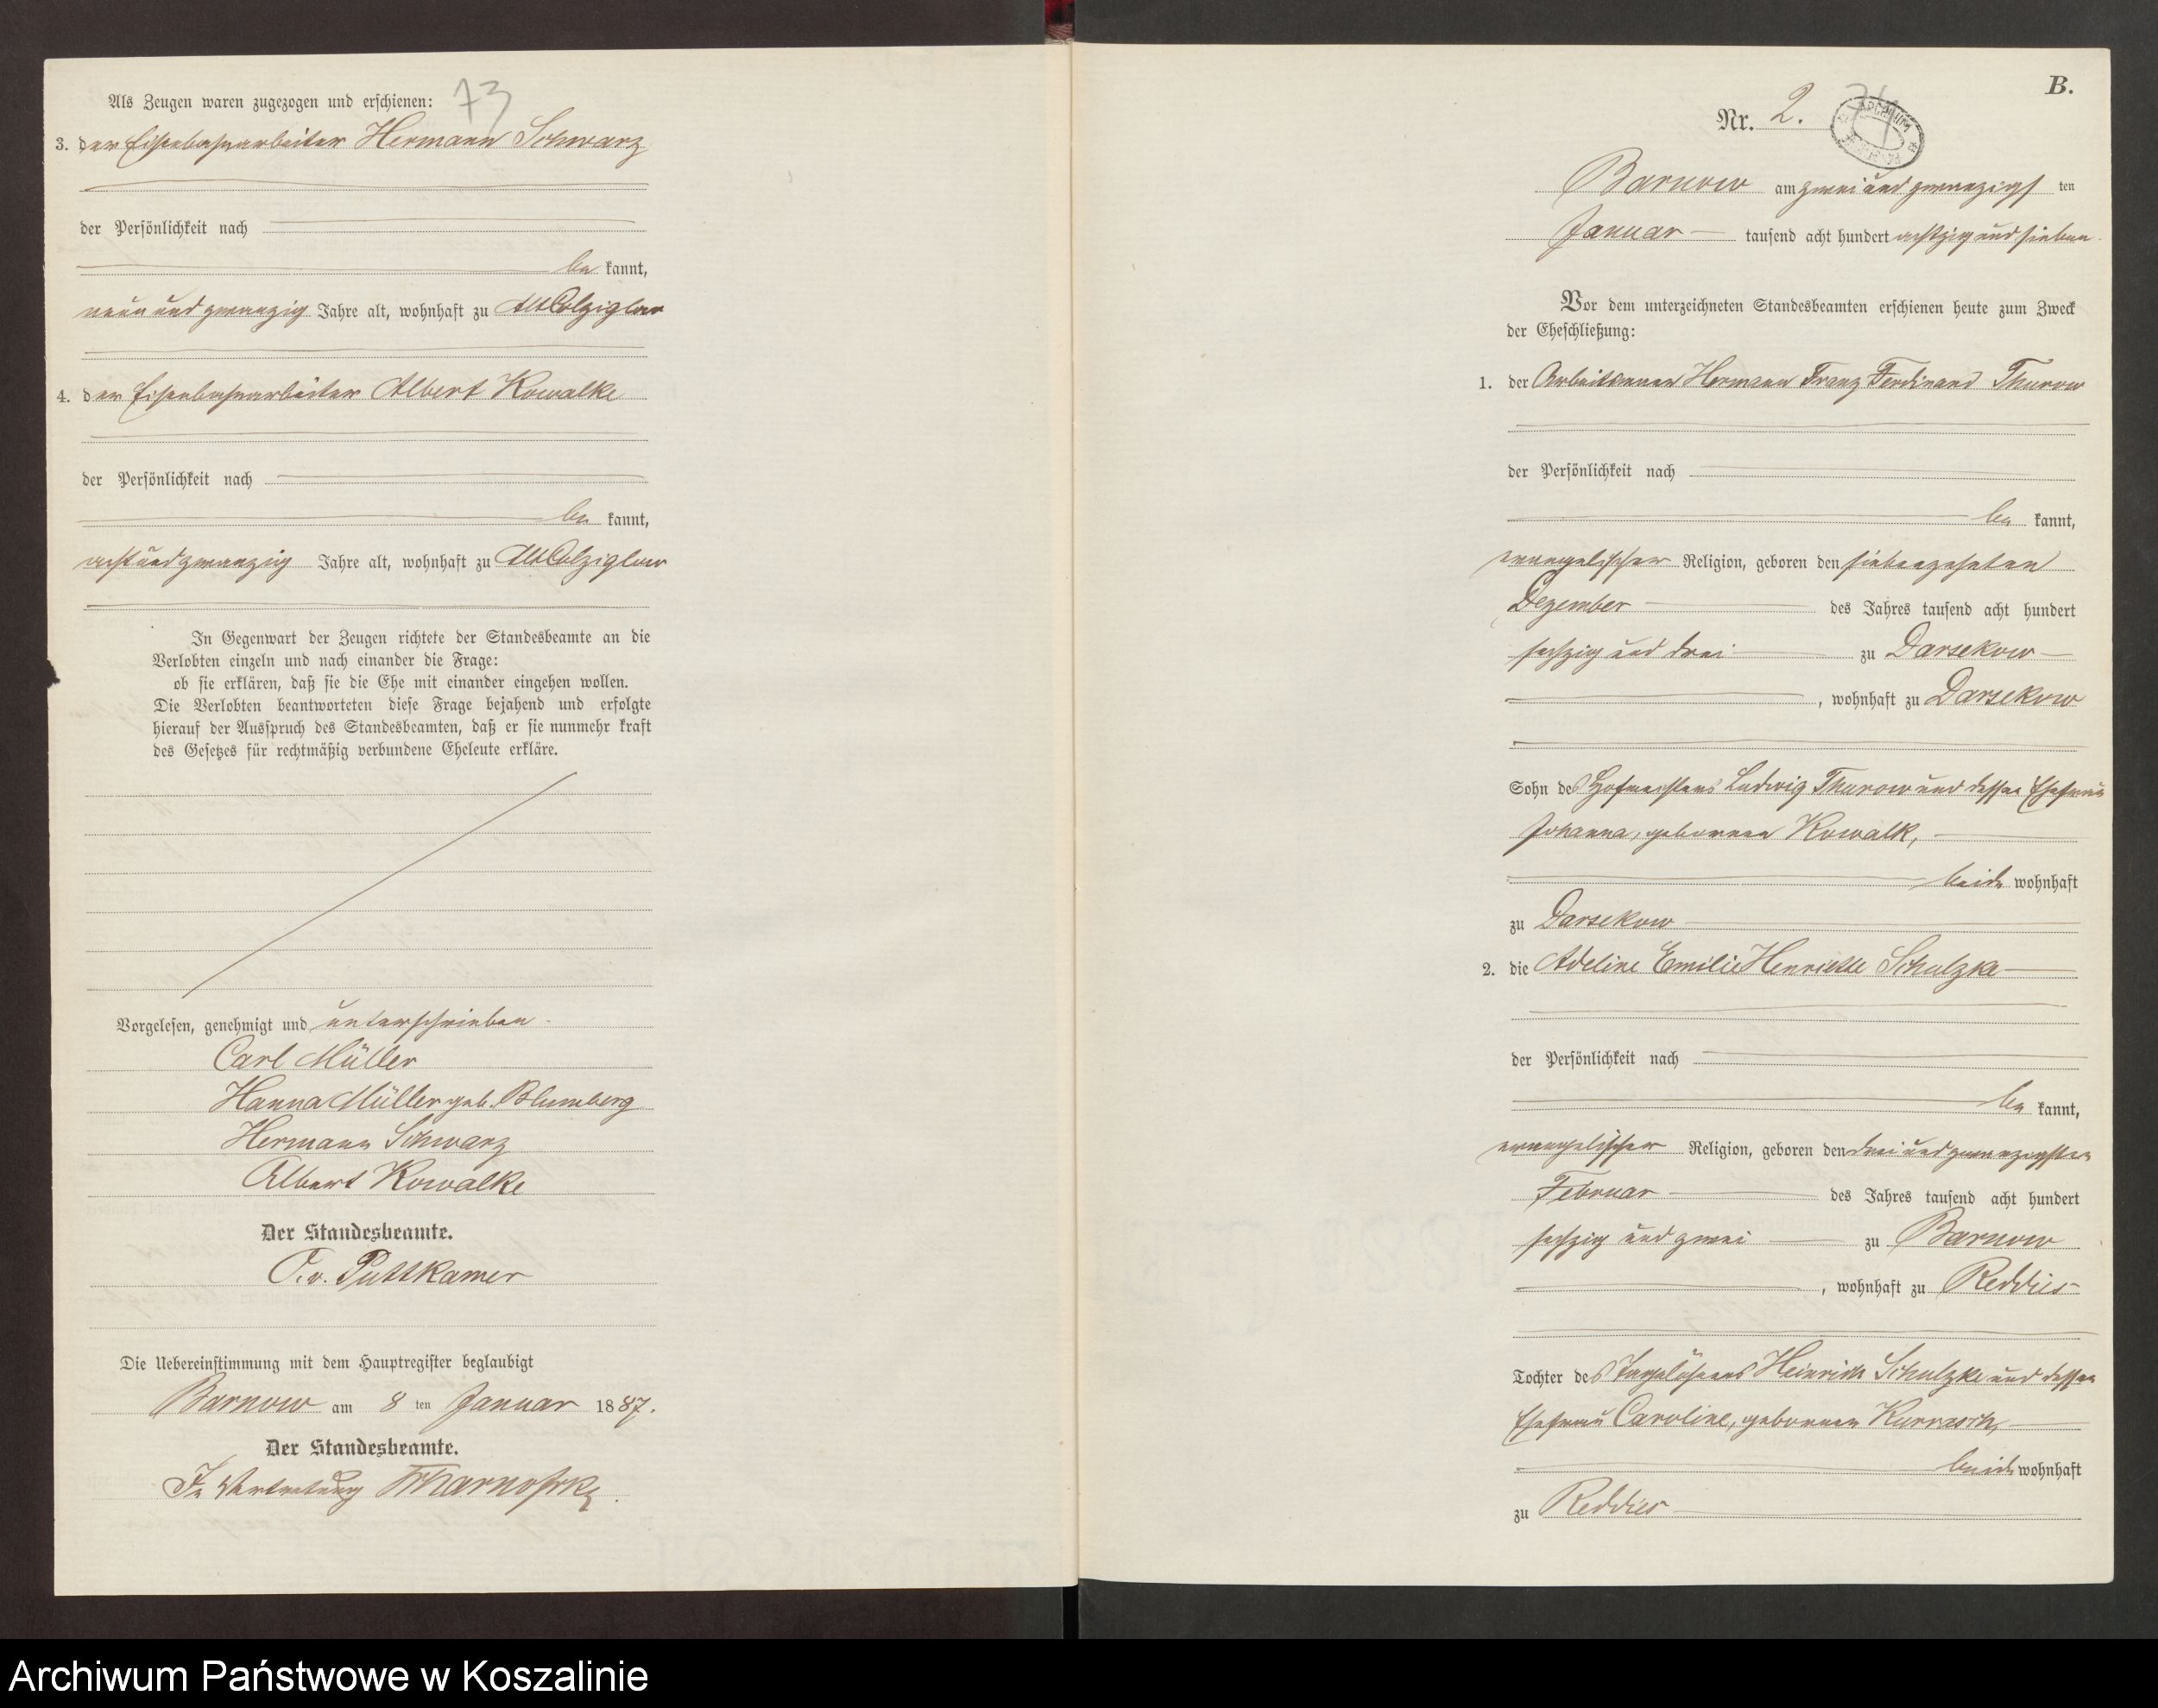 73
Als Zeugen waren zugezogen und erschienen:
3. der Eisenbahnarbeiter Hermann Schwarz
der Persönlichkeit nach
be kannt,
neun und zwanzig Jahre alt, wohnhaft zu Alt Colziglow
4. der Eisenbahnarbeiter Albert Kowalke
der Persönlichkeit nach
be kannt,
acht und zwanzig Jahre alt, wohnhaft zu Alt Colziglow
In Gegenwart der Zeugen richtete der Standesbeamte an die
Verlobten einzeln und nach einander die Frage:
ob sie erklären, daß sie die Ehe mit einander eingehen wollen.
Die Verlobten beantworteten diese Frage bejahend und erfolgte
hierauf der Ausspruch des Standesbeamten, daß er sie nunmehr kraft
des Gesetzes für rechtmäßig verbundene Eheleute erkläre.
Vorgelesen, genehmigt und unterschrieben
Carl Müller
Hanna Müller geb. Blumberg
Hermann Schwarz
Albert Kowalke
Der Standesbeamte.
v. Puttkamer
Die Uebereinstimmung mit dem Hauptregister beglaubigt
Barnow am 8 ten Januar 1887.
Der Standesbeamte.
In Vertretung
B.
Nr. 2. 74
Barnow am zwei und zwanzigs ten
Januar tausend acht hundert achtzig und sieben
Vor dem unterzeichneten Standesbeamten erschienen heute zum Zweck
der Eheschließung:
1. der Arbeitsmann Hermann Franz Ferdinand Thurow
der Persönlichkeit nach
be kannt,
evangelischer Religion, geboren den siebenzehnten
Dezember des Jahres tausend acht hundert
sechzig und drei zu Darsekow
, wohnhaft zu Darsekow
Sohn des Hofmeisters Ludwig Thurow und dessen Ehefrau
Johanna, geborenen Kowalk,
beide wohnhaft
zu Darsekow
2. die Adeline Emilie Henriette Schulzke
der Persönlichkeit nach
be kannt,
evangelischer Religion, geboren den drei und zwanzigsten
Februar des Jahres tausend acht hundert
sechzig und zwei zu Barnow
, wohnhaft zu Reddies
Tochter des Tagelöhners Heinrich Schulzke und dessen
Ehefrau Caroline, geborenen
beide wohnhaft
zu Reddies
Archiwum Państwowe w Koszalinie